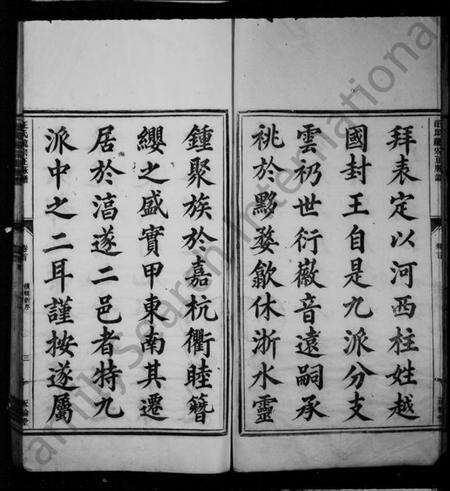 拜表定以河西柱姓越
國封王自是九派分支
雲礽世衍徽音遠嗣承
祧於黟婺歙休浙水靈
鍾聚族於嘉杭衢睦簪
纓之盛實甲東南其遷
居於淓遂二邑者特九
派中之二耳謹按遂屬
卷首
三
FamilySearch International